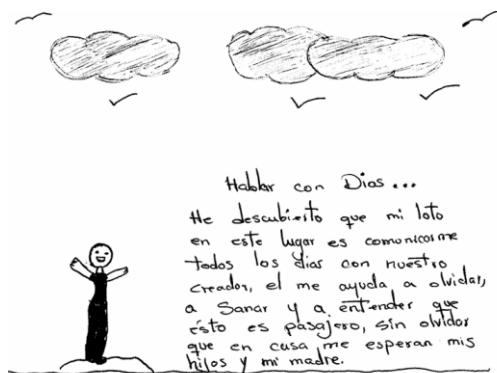 Hablar con Dios...
He descubierto que mi loto
en este lugar es comunicarme
todos los dias con nuestro
creador, el me ayuda a olvidar,
a Sanar y a entender que
ésto es pasajero, sin olvidar
que en casa me esperan mis
hijos y mi madre.